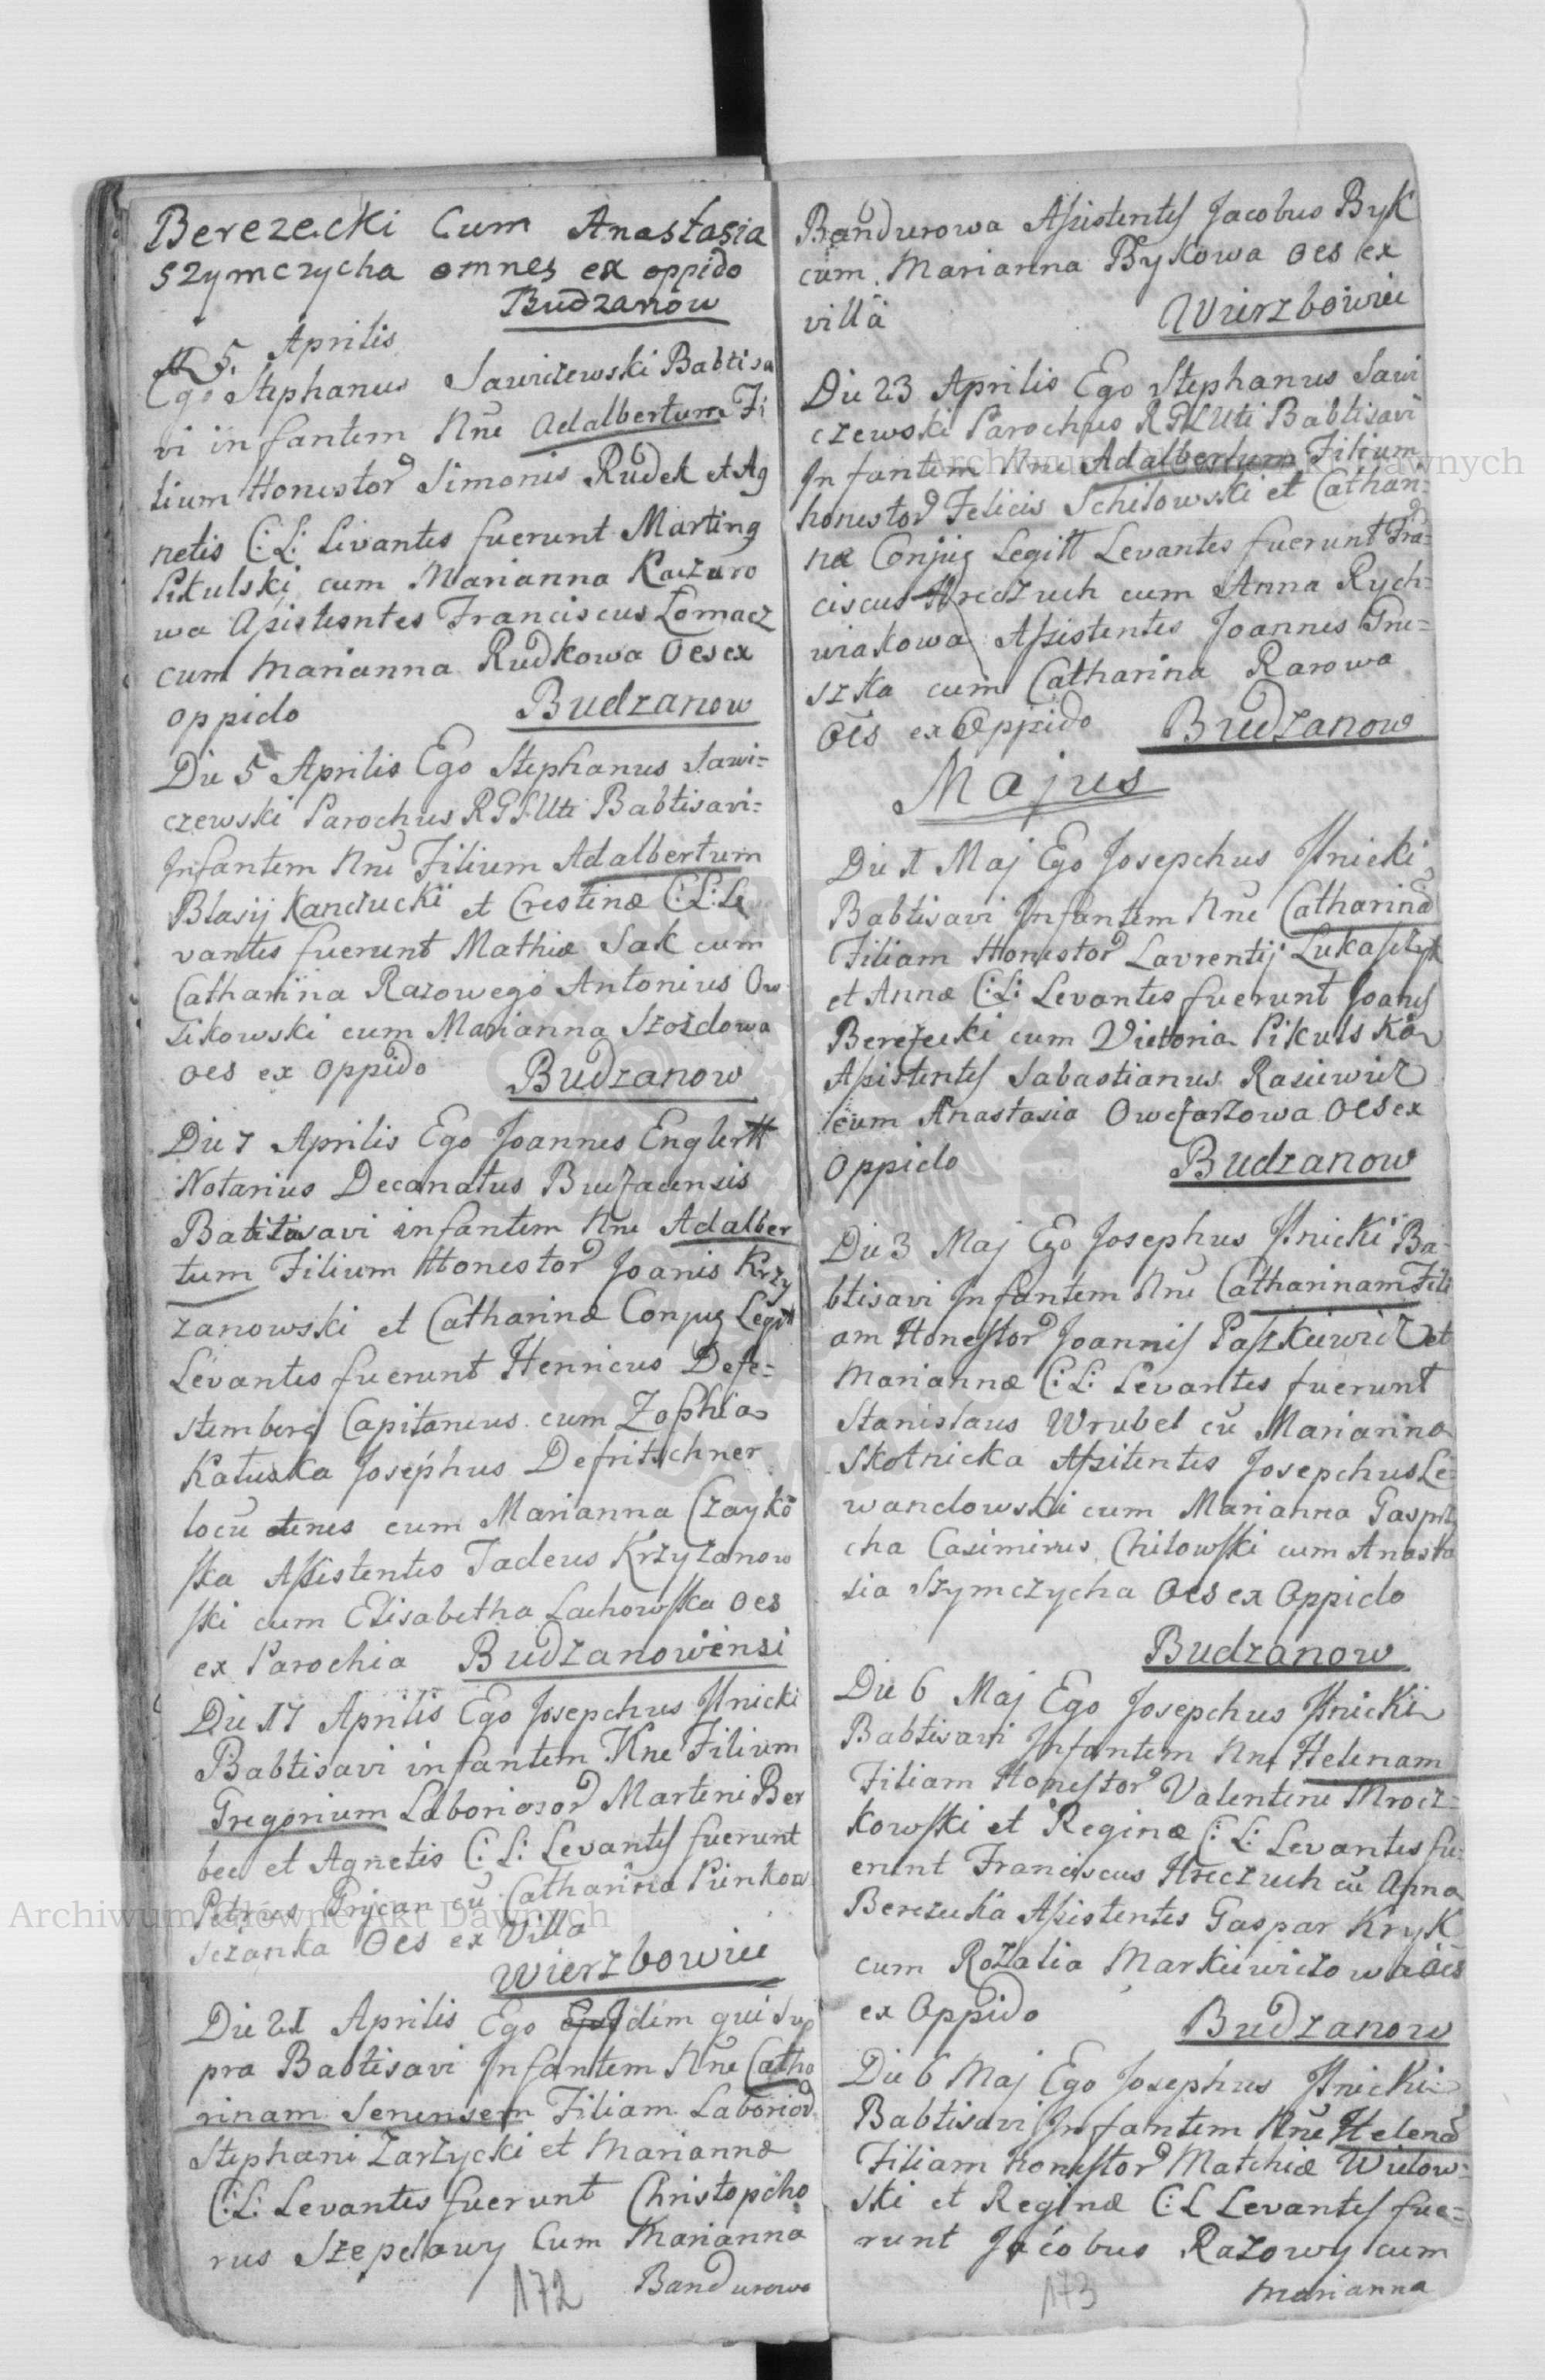 Berezecki Cum Anastasia
Szymczycha omnes ex oppido
Budzanow
D 5 Aprilis
Ego Stephanus Sawiczewski Babtisa
vi infantem Nne Adalbertum Fi
lium Honestor Simonis Rudek et Ag
netis C: L: Levantes fuerunt Marting
Pikulski cum Marianna Kaczuro
wa Assistentes Franciscus Lomacz
cum Marianna Rudkowa Oes ex
oppido Budzanow
Die 5 Aprilis Ego Stephanus Sawi=
czewski Parochus RGLUti Babtisavi=
Infantem Nne Filium Adalbertum
Blasij Kanczucki et Crestinæ C: L: Le
vantes fuerunt Mathiæ Sak cum
Catharina Razowego Antonius Ow
sikowski cum Marianna Szozdowa
oes ex oppido Budzanow
Die 7 Aprilis Ego Joannes Englertt
Notarius Decanatus Buczacensis
Babtisavi infantem Nne Adalber
tum Filium Honestor Joanis Krzy
zanowski et Catharinæ Conjug Legitt
Levantes fuerunt Henricus Defe=
stemberg Capitaneus cum Zophia
Katuska Josephus Defritschner
locu tenes cum Marianna Czayko
ska Assistentes Tadeus Krzyzanow
ski cum Elisabetha Lachowska oes
ex Parochia Budzanowiensi
Die 17 Aprilis Ego Josepchus Ilnicki
Babtisavi infantem Nne Filium
Gregorium Laboriosor Martini Ber
bec et Agnetis C: L: Levantes fuerunt
Petrus cu Catharina Pienkow
sczanka Oes ex Villa
Wierzbowiec
Die 21 Aprilis Ego Ejusdem qui Sup
pra Babtisavi Infantem Nne Catha
rinam Senensem Filiam Laborior
Stephani Zarzycki et Mariannæ
C: L: Levantes fuerunt Christopcho
rus Szepelawy Cum Marianna
172 Bandurowa
Bandurowa Assistentes Jacobus Byk
cum Marianna Bykowa oes ex
villa Wierzbowiec
Die 23 Aprilis Ego Stephanus Sawi
czewski Parochus RGLUti Babtisavi
Infantem Nne Adalbertum Filium
honestor Felicis Schilowski et Cathari=
næ Conjug Legitt Levantes fuerunt Fra=
ciscus Hreczuch cum Anna Rych=
wiakowa Assistentes Joannes Gru=
szka cum Catharina Rarowa
Oes ex Oppido Budzanow
Majus
Die 1 Maj Ego Josepchus Ilnicki
Babtisavi Infantem Nne Catharina
Filiam Honestor Lavrentij Lukaszczyk
et Annæ C: L: Levantes fuerunt Joanes
Berezecki cum Victoria Pikulska
Assistentes Sabastianus Rasiewicz
cum Anastasia Owczarzowa Oes ex
Oppido Budzanow
Die 3 Maj Ego Josephus Ilnicki Ba=
btisavi Infantem Nne Catharinam Fili
am Honestor Joannis Paszkiewicz et
Mariannæ C: L: Levantes fuerunt
Stanislaus Wrubel cu Marianna
Skotnicka Assitentes Josepchus Le=
wandowski cum Marianna Gasprz
cha Casimirus Chilowski cum Anasta
sia Szymczycha Oes ex Oppido
Budzanow
Die 6 Maj Ego Josepchus Ilnicki
Babtisavi Infantem Nne Helenam
Filiam Honestor Valentini Mrocz=
kowski et Reginæ C: L: Levantes fu=
erunt Franciscus Hreczuch cu Anna
Berezecka Assistentes Gaspar Kryk
cum Rozalia Markiewiczowa oes
ex Oppido Budzanow
Die 6 Maj Ego Josephus Ilnicki
Babtisavi Infantem Nne Helena
Filiam honestor Matchiæ Wielow=
ski et Reginæ C: L Levantes fue=
runt Jacobus Razowy cum
173 Marianna
Archiwum Główne Akt Dawnych
Archiwum Główne Akt Dawnych